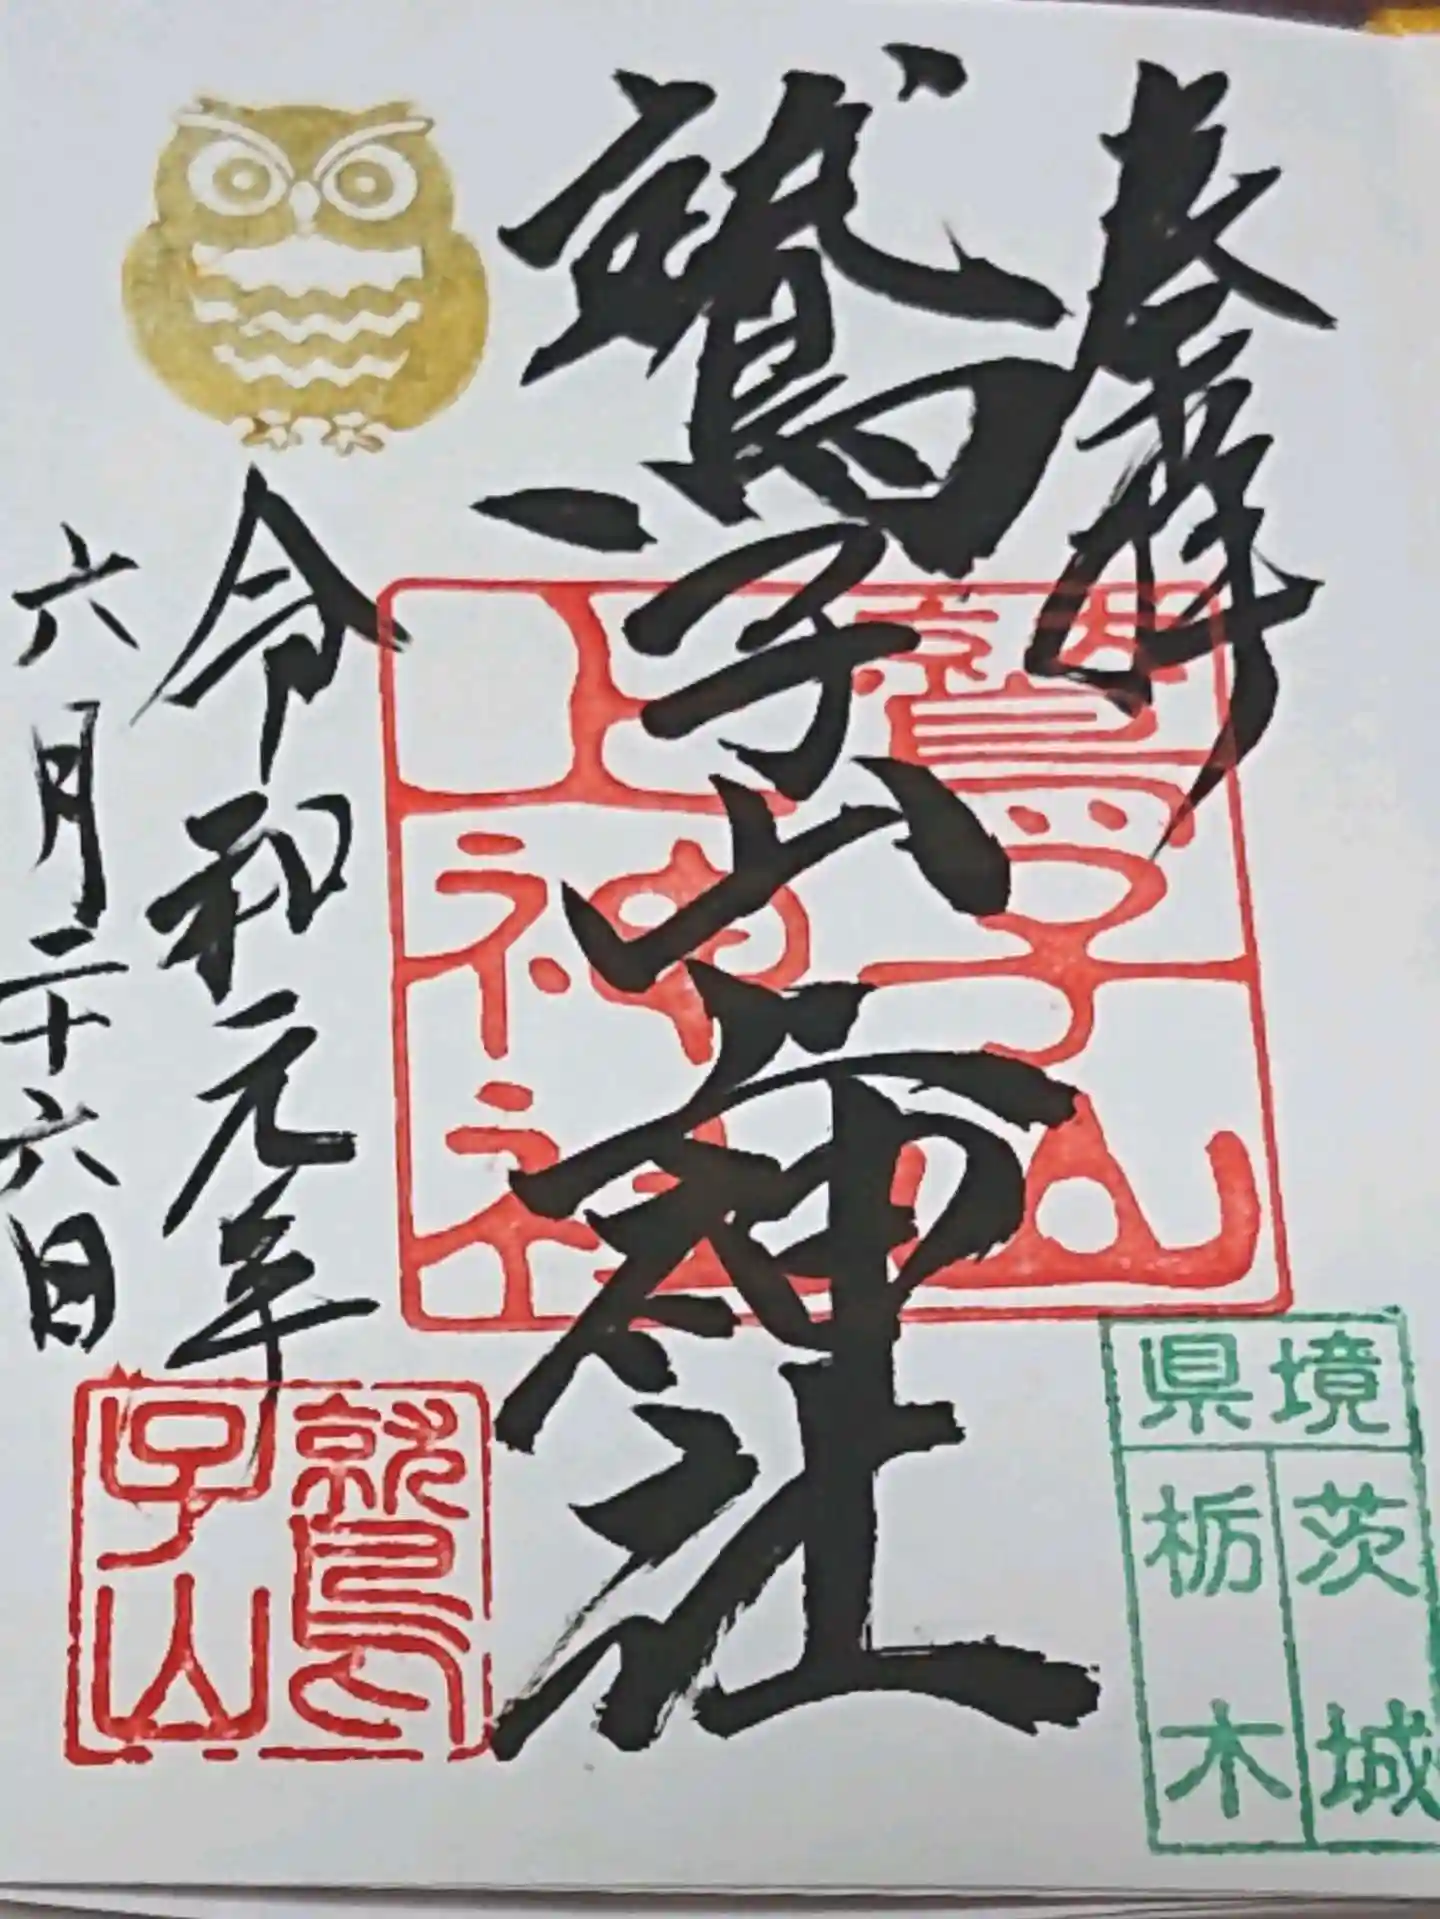 奉拝
鷲子山上神社
令和元年
六月二十六日
鷲子山
上神社
鷲
子山
県境
茨城
栃木